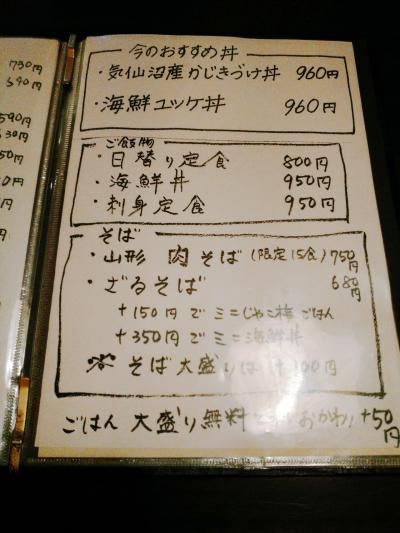 730円
690円
590円
630円
今のおすすめ丼
・気仙沼産かじきづけ丼 960円
・海鮮ユッケ丼 960円
ご飯物
・日替り定食 800円
・海鮮丼 950円
・刺身定食 950円
そば
・山形 肉そば (限定15食) 750円
・ざるそば 680円
+150円でミニじゃこ梅ごはん
+350円でミニ海鮮丼
※そば大盛りは+100円
ごはん 大盛り無料 おかわり+50円